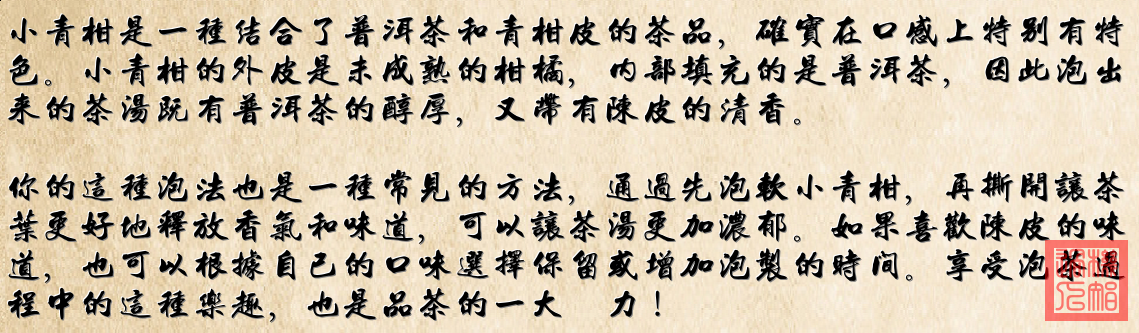 小青柑是一種結合了普洱茶和青柑皮的茶品，確實在口感上特別有特
色。小青柑的外皮是未成熟的柑橘，內部填充的是普洱茶，因此泡出
來的茶湯既有普洱茶的醇厚，又帶有陳皮的清香。
你的這種泡法也是一種常見的方法，通過先泡軟小青柑，再撕開讓茶
葉更好地釋放香氣和味道，可以讓茶湯更加濃郁。如果喜歡陳皮的味
道，也可以根據自己的口味選擇保留或增加泡製的時间。享受泡茶過
程中的這種樂趣，也是品茶的一大　力！